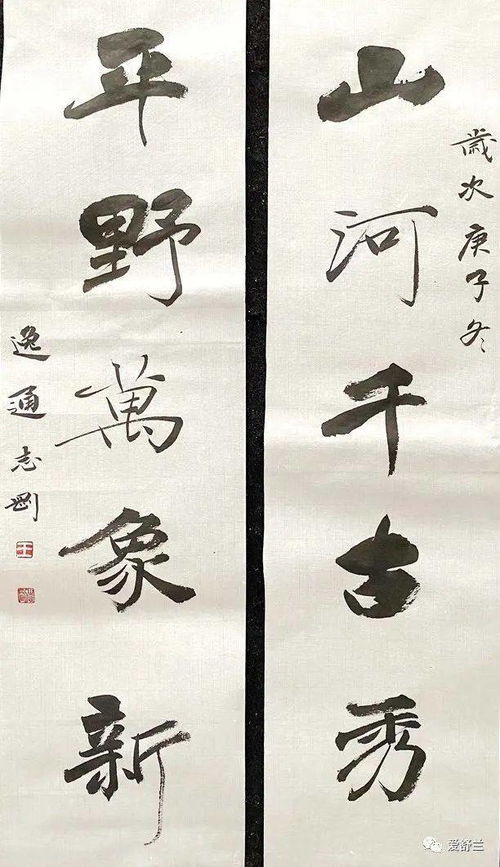 山河千古秀
歲次庚子冬
平野萬象新
逸通志剛
王
爱舒兰